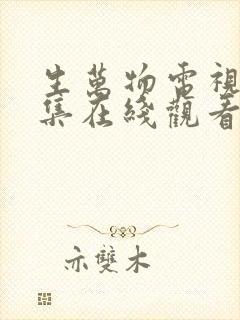 生萬物電視
集在綫觀看
亦雙木